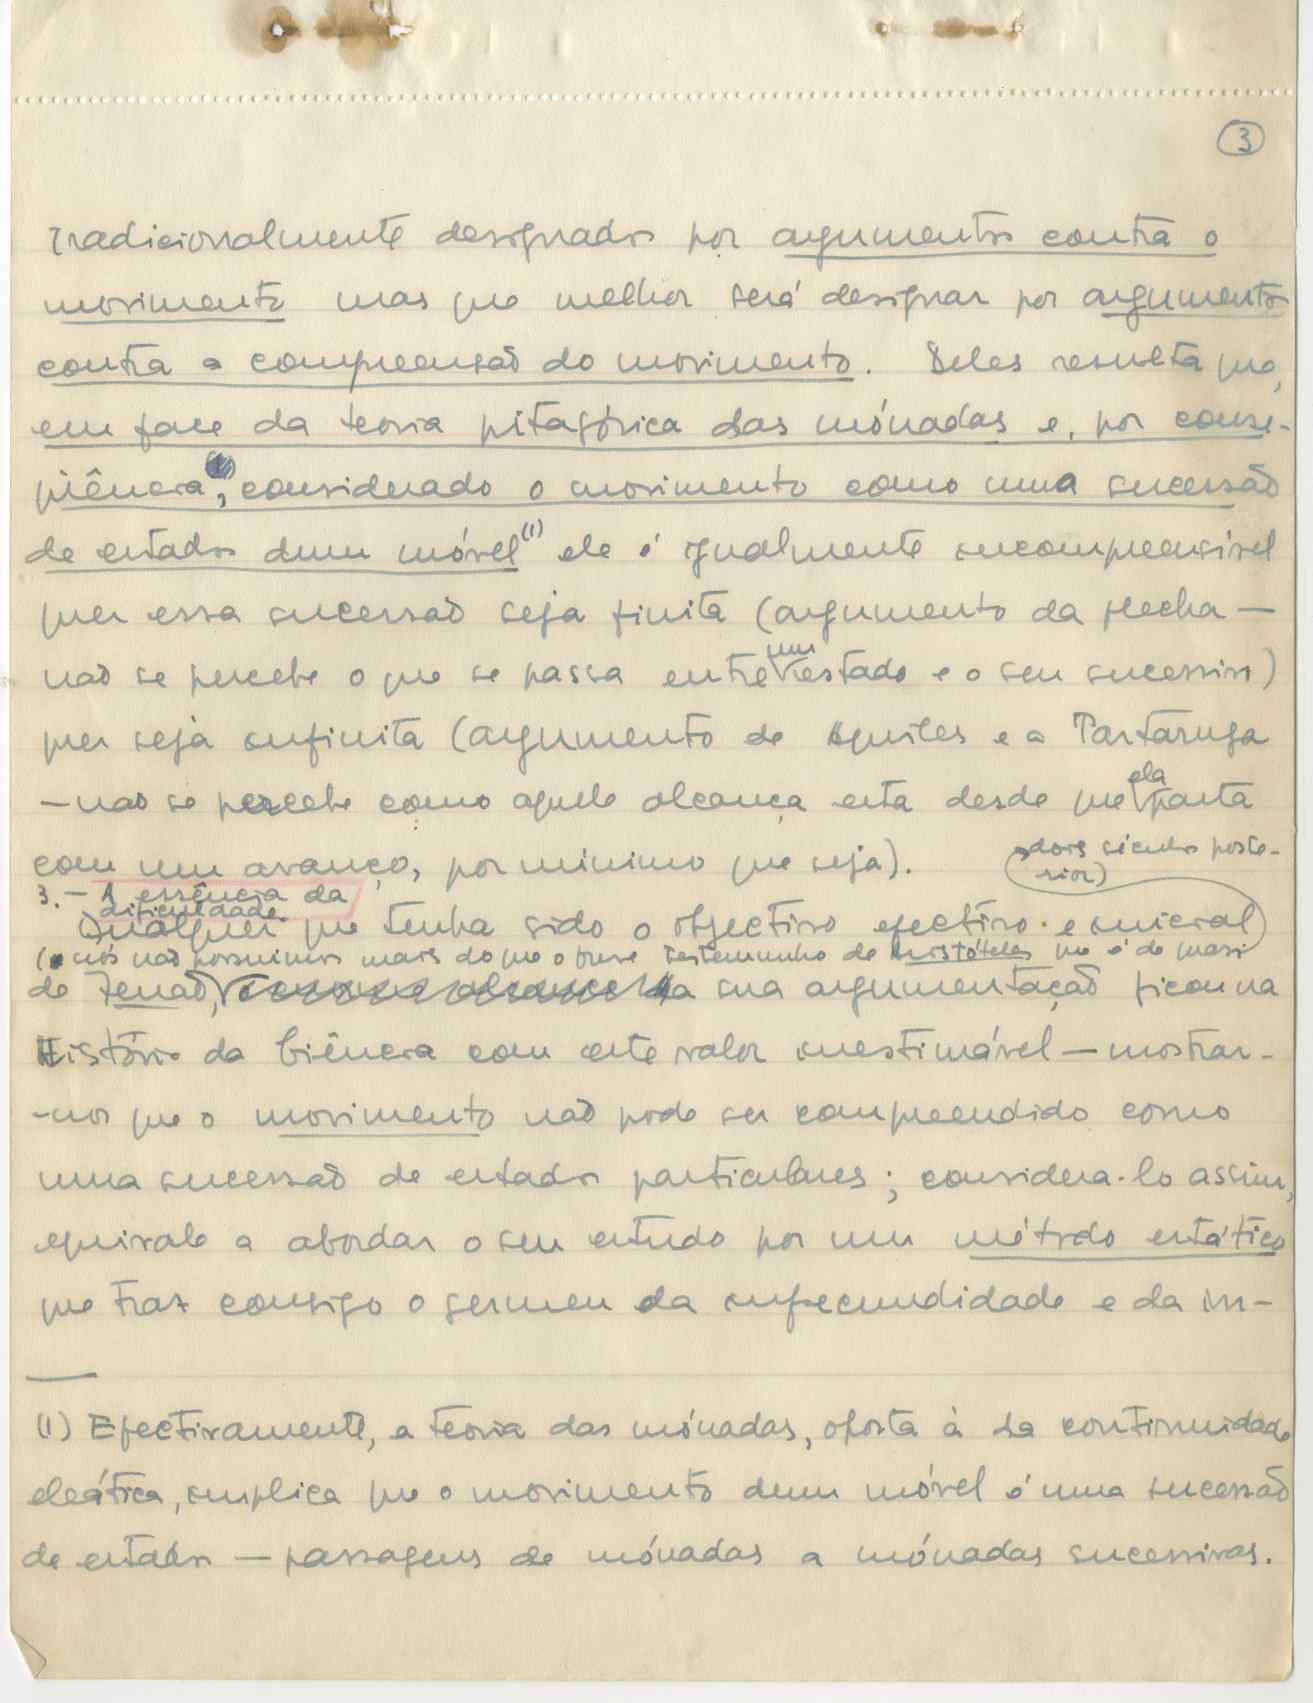 3
tradicionalmente designados por argumentos contra o
movimento mas que melhor será designar por argumentos
contra a compreensão do movimento. Deles resulta que,
em face da teoria pitagórica das mónadas e, por conse-
qüência, considerado o movimento como uma sucessão
de estados dum móvel (1) ele é igualmente incompreensível
quer essa sucessão seja finita (argumento da flecha —
não se percebe o que se passa entre um estado e o seu sucessivo)
quer seja infinita (argumento de Aquiles e a Tartaruga
— não se percebe como aquele alcança esta desde que ela parta
com um avanço, por mínimo que seja).
3. — A essência da
dificuldade.
Qualquer que tenha sido o objectivo efectivo e inicial
(e nós não possuimos mais do que o breve testemunho de Aristóteles que é de quasi
dois séculos poste-
rior)
de Zenão, a sua argumentação ficou na
História da Ciência com este valor inestimável — mostrar-
-nos que o movimento não pode ser compreendido como
uma sucessão de estados particulares; considera-lo assim,
equivale a abordar o seu estudo por um método estático
que traz consigo o germen da infecundidade e da in-
(1) Efectivamente, a teoria das mónadas, oposta à da continuidade
eleática, implica que o movimento dum móvel é uma sucessão
de estados — passagens de mónadas a mónadas sucessivas.